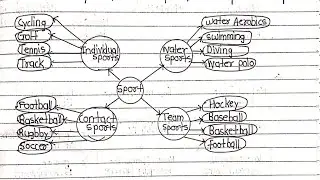 Cycling
Golf
Tennis
Track
Individual
sports
Water
sports
water Aerobics
swimming
Diving
Water polo
Sport
Football
Basketball
Rugby
Soccer
Contact
sports
Team
sports
Hockey
Baseball
Basketball
Football